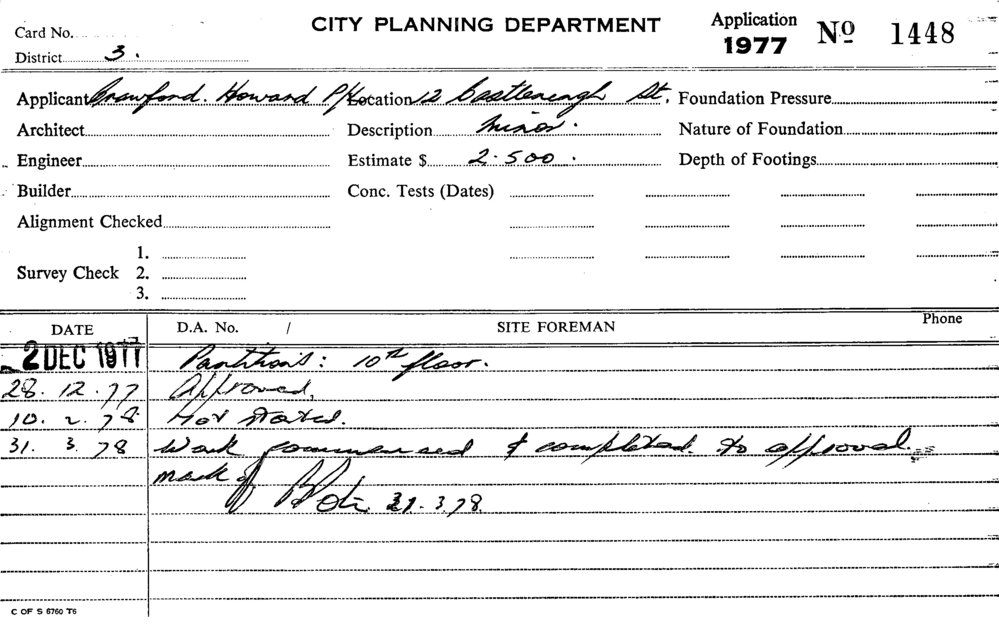 CITY PLANNING DEPARTMENT
Application 1977 No 1448
Card No.
District 3.
Applicant Crawford. Howard P/L Location 12 Castlereagh St. Foundation Pressure
Architect Description Minor. Nature of Foundation
Engineer Estimate $ 2.500. Depth of Footings
Builder Conc. Tests (Dates)
Alignment Checked
1.
Survey Check 2.
3.
DATE D.A. No. / SITE FOREMAN Phone
2 DEC 1977 Partitions: 10th floor.
28. 12. 77 Approved.
10. 2. 78 Not started.
31. 3. 78 Work commenced & completed. to approval.
mark off 31. 3.78.
C OF S 6760 T6